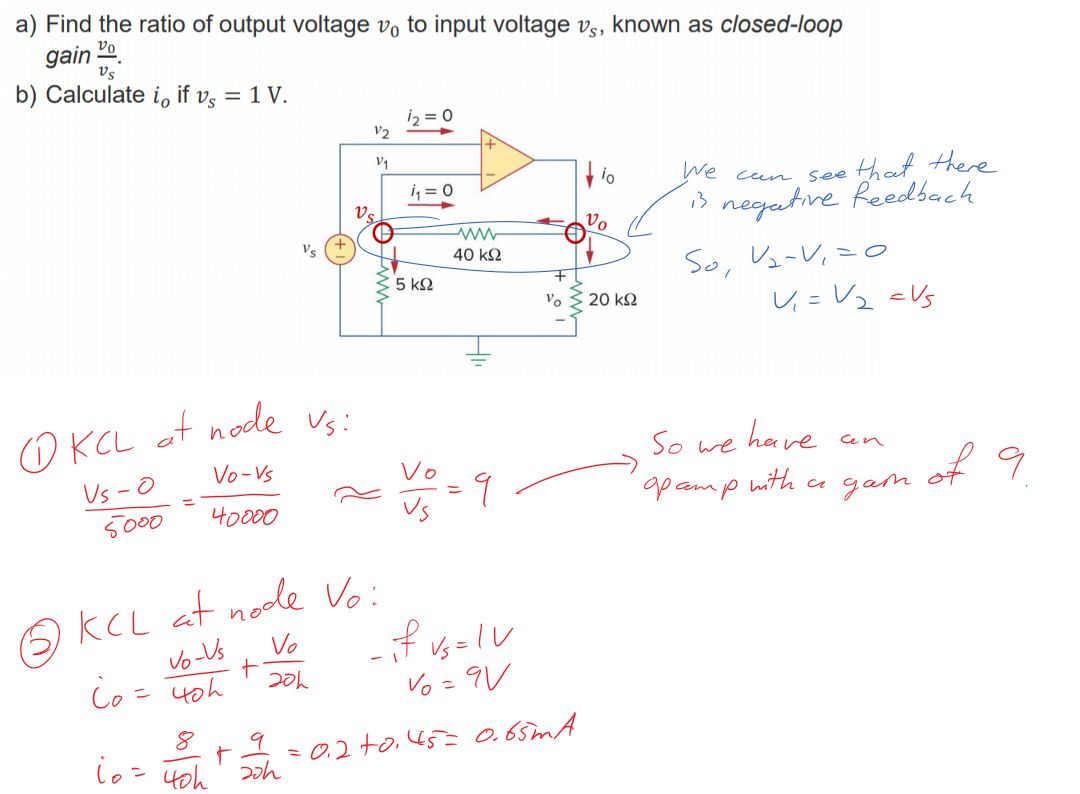 a) Find the ratio of output voltage v₀ to input voltage vₛ, known as closed-loop
gain v₀/vₛ.
b) Calculate iₒ if vₛ = 1 V.
i₂ = 0
v₂
+
v₁
−
i₁ = 0
iₒ
We can see that there
is negative feedback
Vₛ
Vₒ
vₛ
+
−
40 kΩ
So, V₂-V₁=0
5 kΩ
+
vₒ
−
20 kΩ
V₁ = V₂ = Vₛ
① KCL at node Vₛ:
(Vₛ-0)/5000 = (Vₒ-Vₛ)/40000 ≈ Vₒ/Vₛ = 9
So we have an
opamp with a gain of 9.
② KCL at node Vₒ:
iₒ = (Vₒ-Vₛ)/40k + Vₒ/20k
- if Vₛ = 1V
Vₒ = 9V
iₒ = 8/40k + 9/20k = 0.2 + 0.45 = 0.65mA